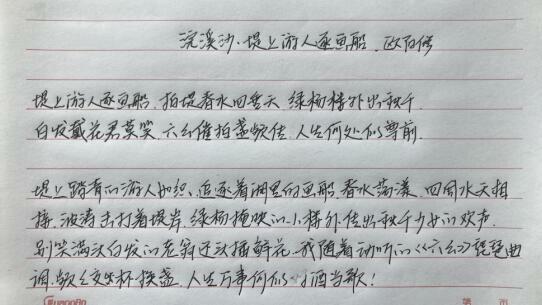 浣溪沙·堤上游人逐画船 欧阳修
堤上游人逐画船,拍堤春水四垂天,绿杨楼外出秋千.
白发戴花君莫笑,六幺催拍盏频传,人生何处似尊前.
堤上踏青的游人如织、追逐着湖里的画船,春水荡漾,四周水天相
接,波涛击打着堤岸,绿杨掩映的小楼外传出秋千少女的欢声,
别笑满头白发的老翁还头插鲜花,我随着动听的《六幺》琵琶曲
调,频频交杯换盏,人生万事何似对酒当歌!
Guangbo
第 页